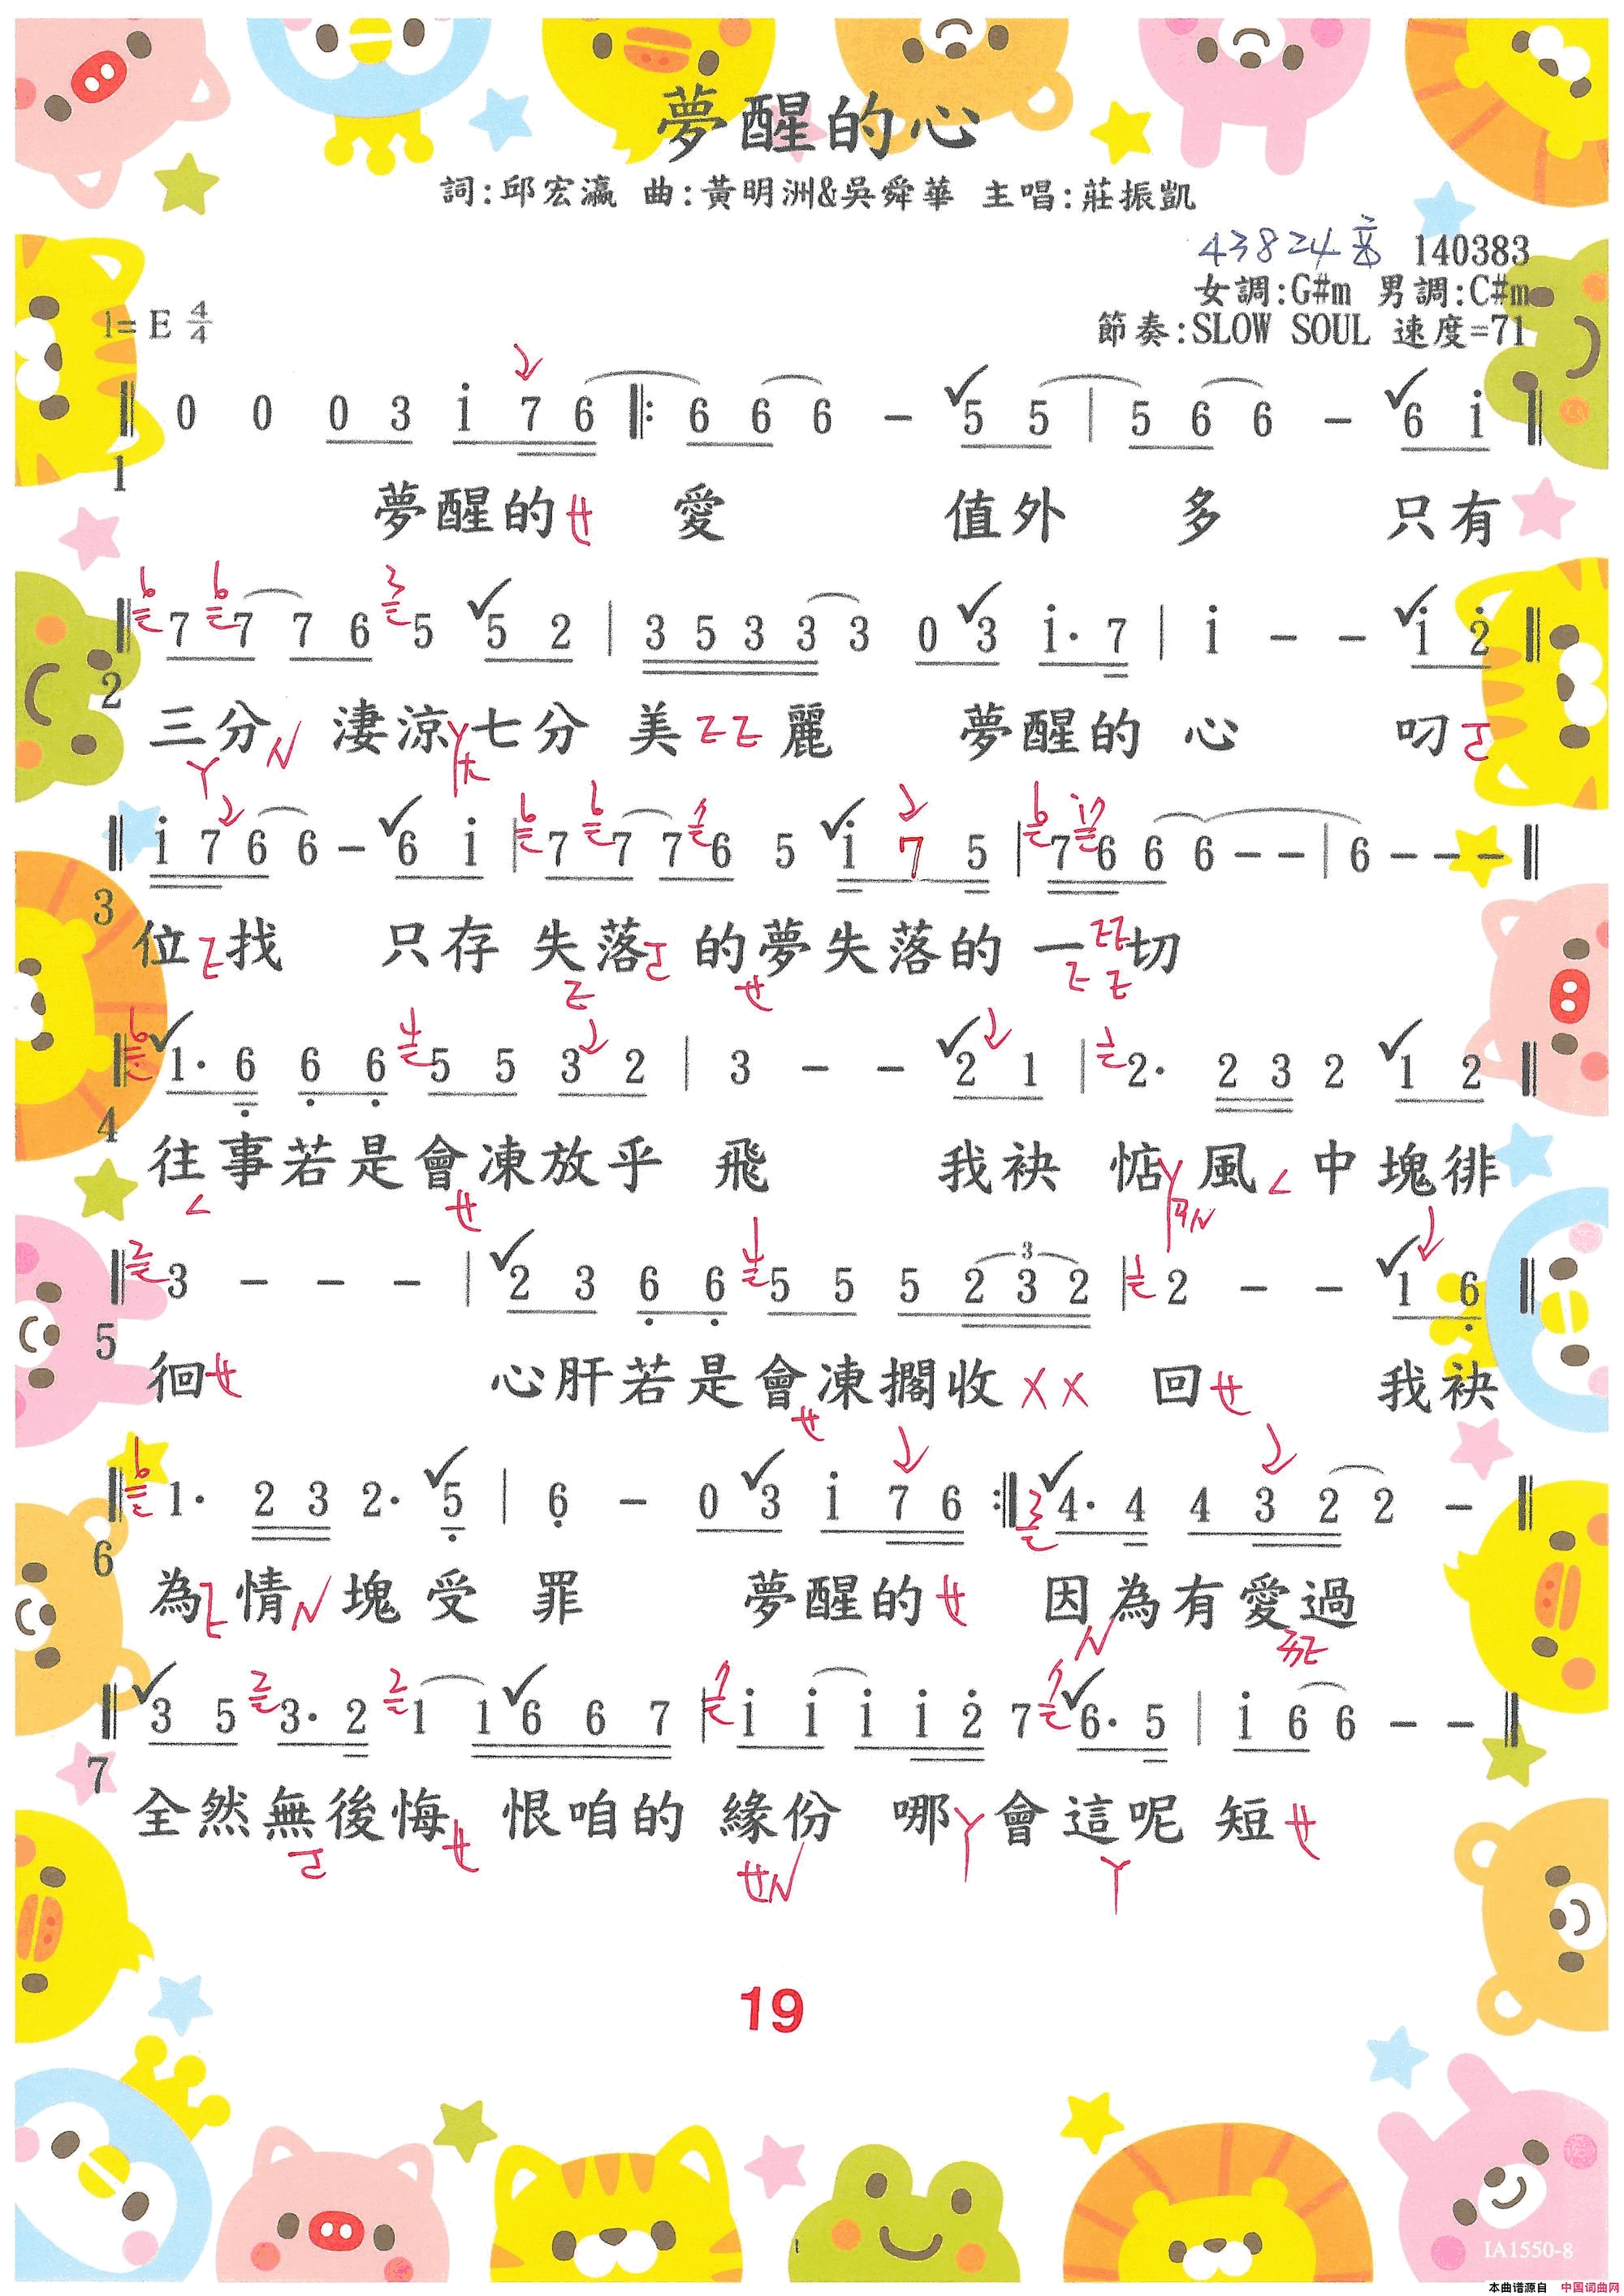 夢醒的心
詞:邱宏瀛 曲:黃明洲&吳舜華 主唱:莊振凱
43824音 140383
女調:G#m 男調:C#m
1=E 4/4
節奏:SLOW SOUL 速度=71
0 0 0 3 i 7 6 𝄆 6 6 6 - 5 5 | 5 6 6 - 6 i
1
夢醒的ㄝ 愛 值外 多 只有
7 7 7 6 5 5 2 | 3 5 3 3 3 0 3 i· 7 | i - - i 2
2
三分 淒涼 七分 美 ㄛㄛ 麗 夢醒的 心 叨
i 7 6 6 - 6 i | 7 7 7 6 5 i 7 5 | 7 6 6 6 - - | 6 - - -
3
位 找 只存 失落 的夢失落的 一 切
1· 6 6 6 5 5 3 2 | 3 - - 2 1 | 2· 2 3 2 1 2
4
往事若是會凍放乎 飛 我袂 惦 風 中塊徘
3 - - - | 2 3 6 6 5 5 5 2 3 2 | 2 - - 1 6
3
5
徊ㄝ 心肝若是會凍擱收 ㄨㄨ 回ㄝ 我袂
1· 2 3 2· 5 | 6 - 0 3 i 7 6 :‖ 4· 4 4 3 2 2 -
6
為 情 塊 受 罪 夢醒的ㄝ 因為有愛過
3 5 3· 2 1 1 6 6 7 | i i i i 2 7 6· 5 | i 6 6 - -
7
全然無後悔ㄝ 恨咱的 緣份 哪ㄚ會這呢 短ㄝ
19
IA1550-8
本曲谱源自 中国词曲网